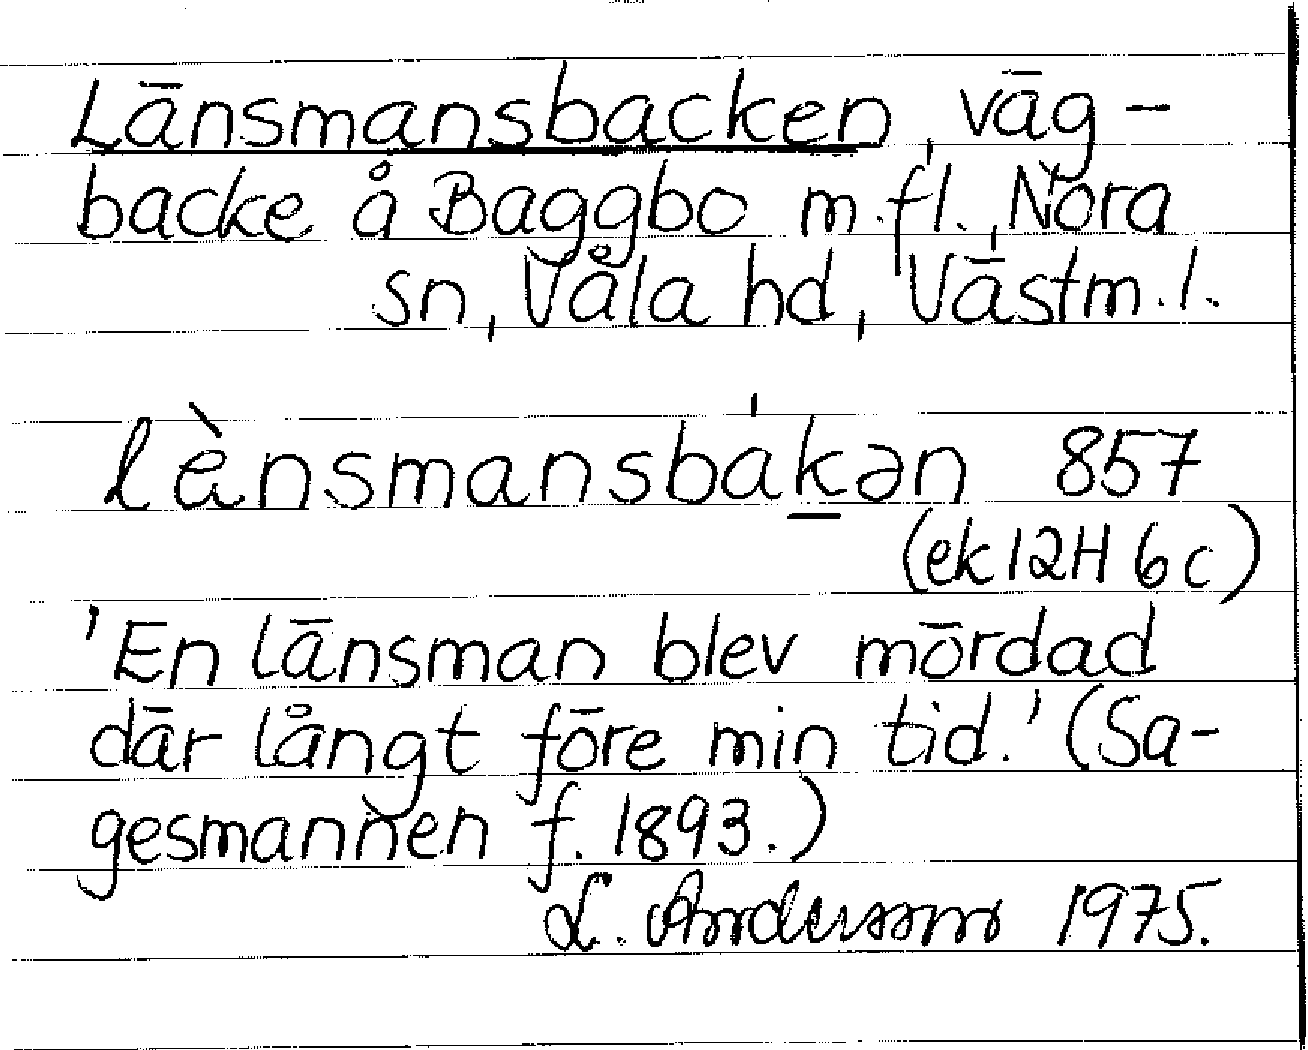 Länsmansbacken, väg-
backe å Baggbo m.fl., Nora
sn, Våla hd, Västm.l.
lènsmansbákən 857
(ek 12H 6c)
'En länsman blev mördad
där långt före min tid.' (Sa-
gesmannen f. 1893.)
L. Andersson 1975.